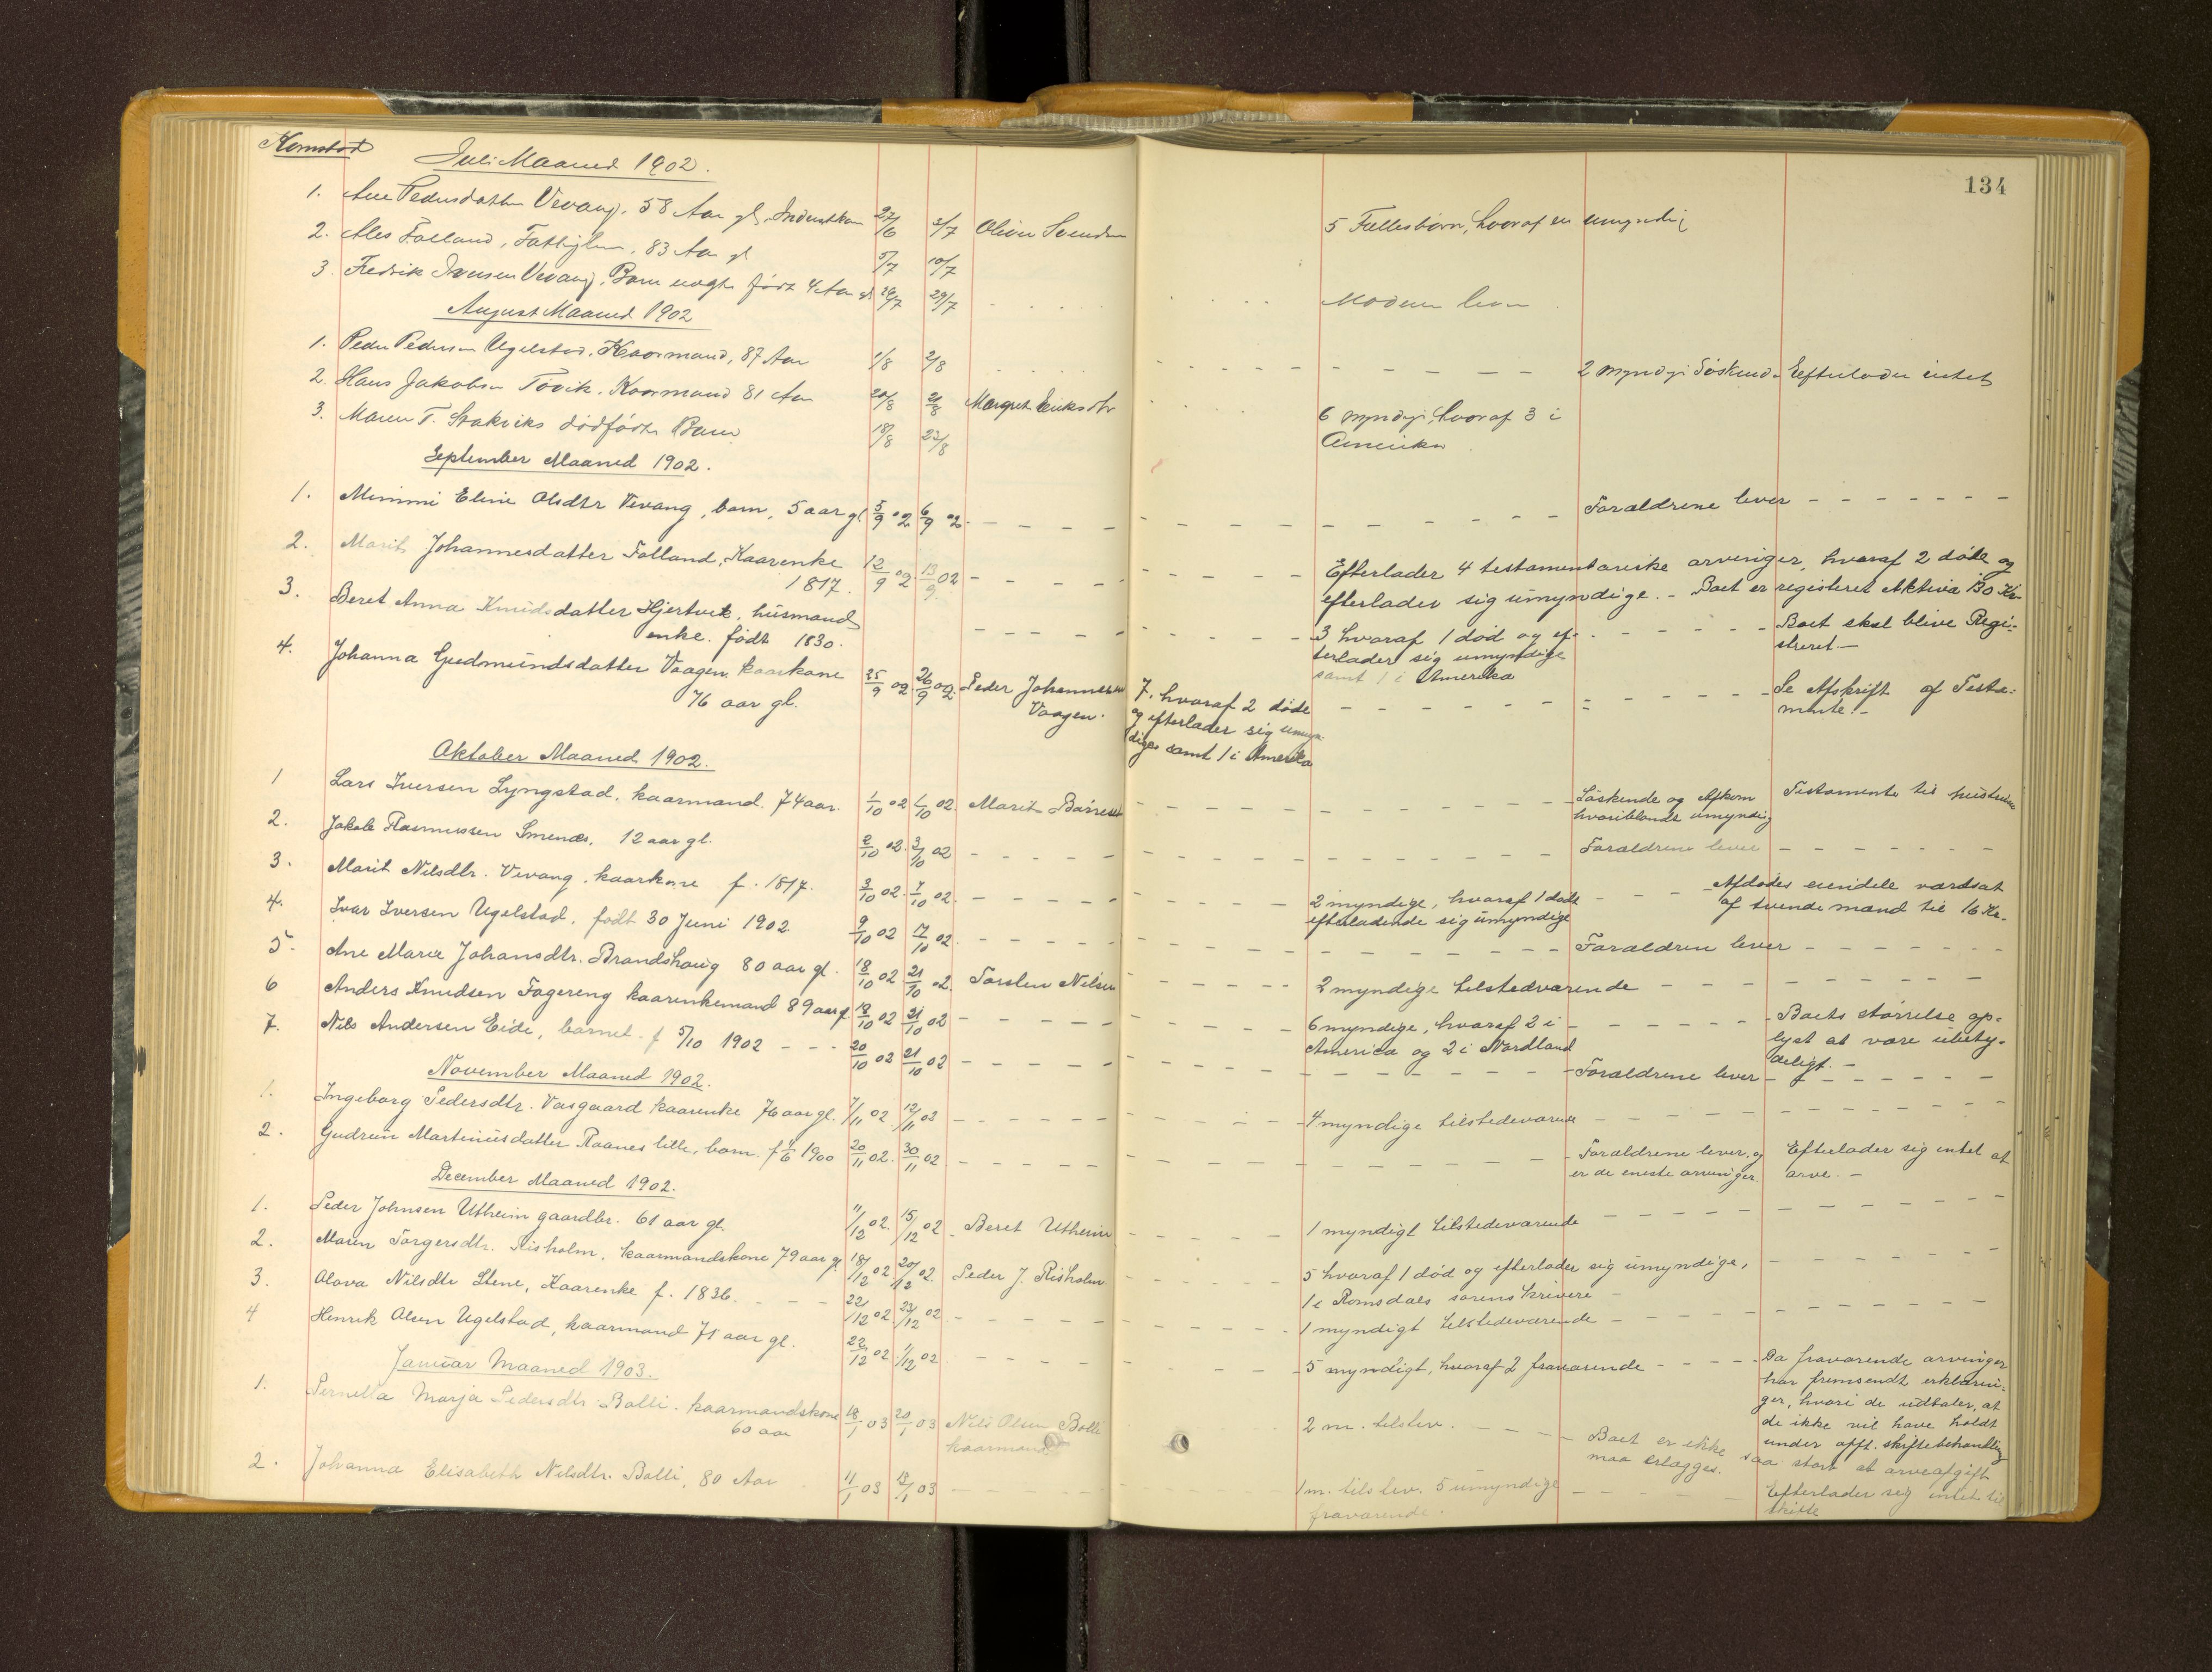 134
Kornstad
Juli Maaned 1902.
1. Ane Pedersdatter Vevang, 58 Aar gl, 27/6 3/7 Oliver Svendsen 5 Fællesbørn, hvoraf en umyndig
2. Folland, Fattiglem, 83 Aar gl 5/7 10/7
3. Fredrik Iversen Vevang, Barn født 4 Aar gl 24/7 29/7 Moderen lever
August Maaned 1902
1. Peder Pedersen Ugelstad, Kaarmand, 87 Aar 1/8 2/8 2 myndige Søskende Efterlader intet
2. Hans Jakobsen Tøvik, Kaarmand 81 Aar 20/8 21/8 Margret Eriksdtr 6 myndige, hvoraf 3 i
Amerika
3. Maren T. Stakviks dødfødte Barn 18/8 23/8
September Maaned 1902.
1. Mimmi Eline Olsdtr Vevang, barn, 5 aar gl 5/9 02 6/9 02. Forældrene lever
2. Marit Johannesdatter Folland, Kaarenke 12/9 02. 13/9 02 Efterlader 4 testamentariske arvinger, hvoraf 2 døde og
1817. efterlader sig umyndige. - Boet er registreret Aktiva 130 Kr.
3. Beret Anna Knudsdatter Hjertvik, husmand 3 hvoraf 1 død og ef- Boet skal blive Regi-
enke. født 1830. terlader sig umyndige streret. -
samt 1 i Amerika
4. Johanna Gudmundsdatter Vaagen, kaarkone 25/9 02. 26/9 02. Peder Johannesen 7. hvoraf 2 døde Se Afskrift af Testa-
76 aar gl. Vaagen. og efterlader sig umyn- mente. -
dige samt 1 i Amerika
Oktober Maaned 1902.
1 Lars Iversen Lyngstad, kaarmand. 74 aar. 1/10 02 6/10 02. Marit Søskende og Afkom Testamente til hustruen
hvoriblandt umyndig
2. Jakob Rasmussen Smenes, 12 aar gl. 2/10 02. 3/10 02 Forældrene lever
3. Marit Nilsdtr. Vevang, kaarkone f. 1817. 3/10 02. 7/10 02. 2 myndige, hvoraf 1 død Afdødes eiendele værdsat
efterladende sig umyndige af tvende mænd til 16 Kr.
4. Ivar Iversen Ugelstad, født 30 Juni 1902. 9/10 02 17/10 02. Forældren lever
5. Ane Marie Johansdtr. Brandshaug 80 aar gl. 18/10 02 21/10 02. Torsten Nilsen 2 myndige tilstedværende
6 Anders Knudsen Fagereng kaarenkemand 89 aar gl 18/10 02 21/10 02 6 myndige, hvoraf 2 i Boets størrelse op-
America og 2 i Nordland lyst at være ubety-
deligt. -
7. Nils Andersen Eide, barnet f 5/10 1902 20/10 02 21/10 02 Forældrene lever
November Maaned 1902.
1. Ingeborg Pedersdtr. Vasgaard kaarenke 76 aar gl. 7/11 02. 12/11 02 4 myndige tilstedeværende
2. Gudrun Martinusdatter Raanes lille, barn. f 1/6 1900 20/11 02. 30/11 02 Forældrene lever, og Efterlader sig intet at
er de eneste arvinger. arve. -
December Maaned 1902.
1. Peder Johnsen Utheim gaardbr. 61 aar gl. 11/12 02. 15/12 02 Beret Utheim 1 myndigt tilstedeværende
2. Maren Torgersdtr. Risholm, kaarmandskone 79 aar gl 18/12 02. 20/12 02. Peder J. Risholm 5 hvoraf 1 død og efterlader sig umyndige,
1 i Romsdals sorenskriveri -
3. Olava Nilsdtr Stene, Kaarenke f. 1836. 22/12 02 23/12 02 1 myndigt tilstedeværende
4 Henrik Olsen Ugelstad, kaarmand 71 aar gl. 22/12 02 1/12 02 5 myndigt, hvoraf 2 fraværende Da fraværende arvinger
har fremsendt erklærin-
ger, hvori de udtaler, at
de ikke vil have holdt
under offt. skiftebehandling
Januar Maaned 1903.
1. Pernella Marja Pedersdtr Bolli. kaarmandskone 18/1 03 20/1 03 Nils Olsen Bolli 2 m. tilstev. Boet er ikke saa stort at arveafgift
60 aar kaarmand maa erlægges.
2. Johanna Elisabeth Nilsdtr. Bolli, 80 Aar 11/1 03 18/1 03 1 m. tilstev. 5 umyndige Efterlader sig intet til
fraværende. skifte